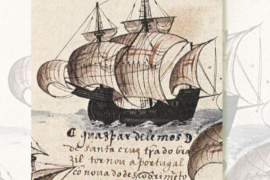 C guaspar de lemos D
de santa cruz tra do bra
zil tornou a portugal
co nova do descobrimēto